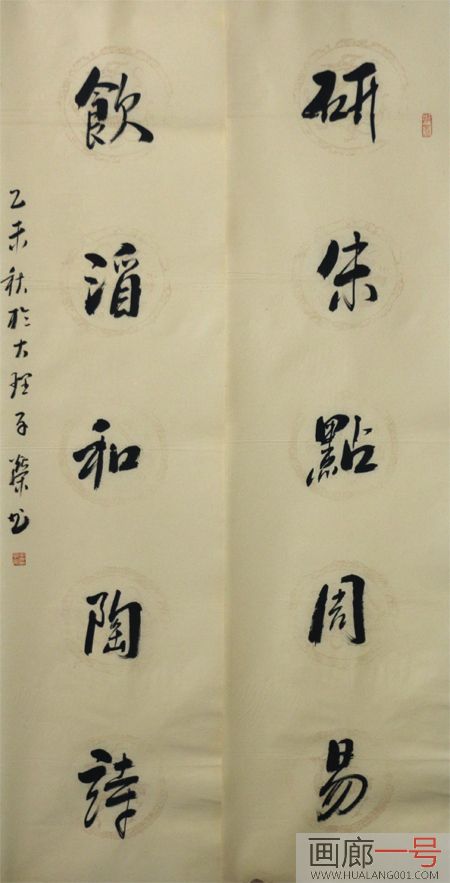 研朱點周易
飲酒和陶詩
乙未秋於大理子榮书
画廊一号
WWW.HUALANG001.COM